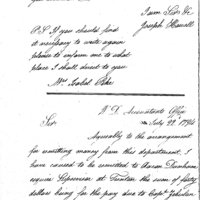 I am Sir &c
Joseph Howell
P.S. If you should find
it necessary to write again
please to inform me to what
place I shall direct to you.
Mrs. Isabel
W. D. Accountants Office
July 28th 1796
Sir
Agreeably to the arrangement
for remitting money from this department, I
have caused to be remitted to Aaron Dunham
esquire Supervisor at Trenton the sum of forty
dollars being for the pay due to Capt. Zebulon